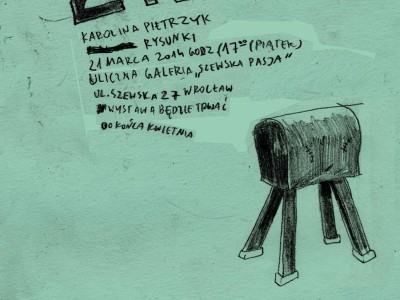 KAROLINA PIETRZYK
RYSUNKI
21 MARCA 2014 GODZ (17⁰⁰ (PIĄTEK)
ULICZNA GALERIA „SZEWSKA PASJA"
UL. SZEWSKA 27 WROCŁAW
WYSTAWA BĘDZIE TRWAĆ
DO KOŃCA KWIETNIA